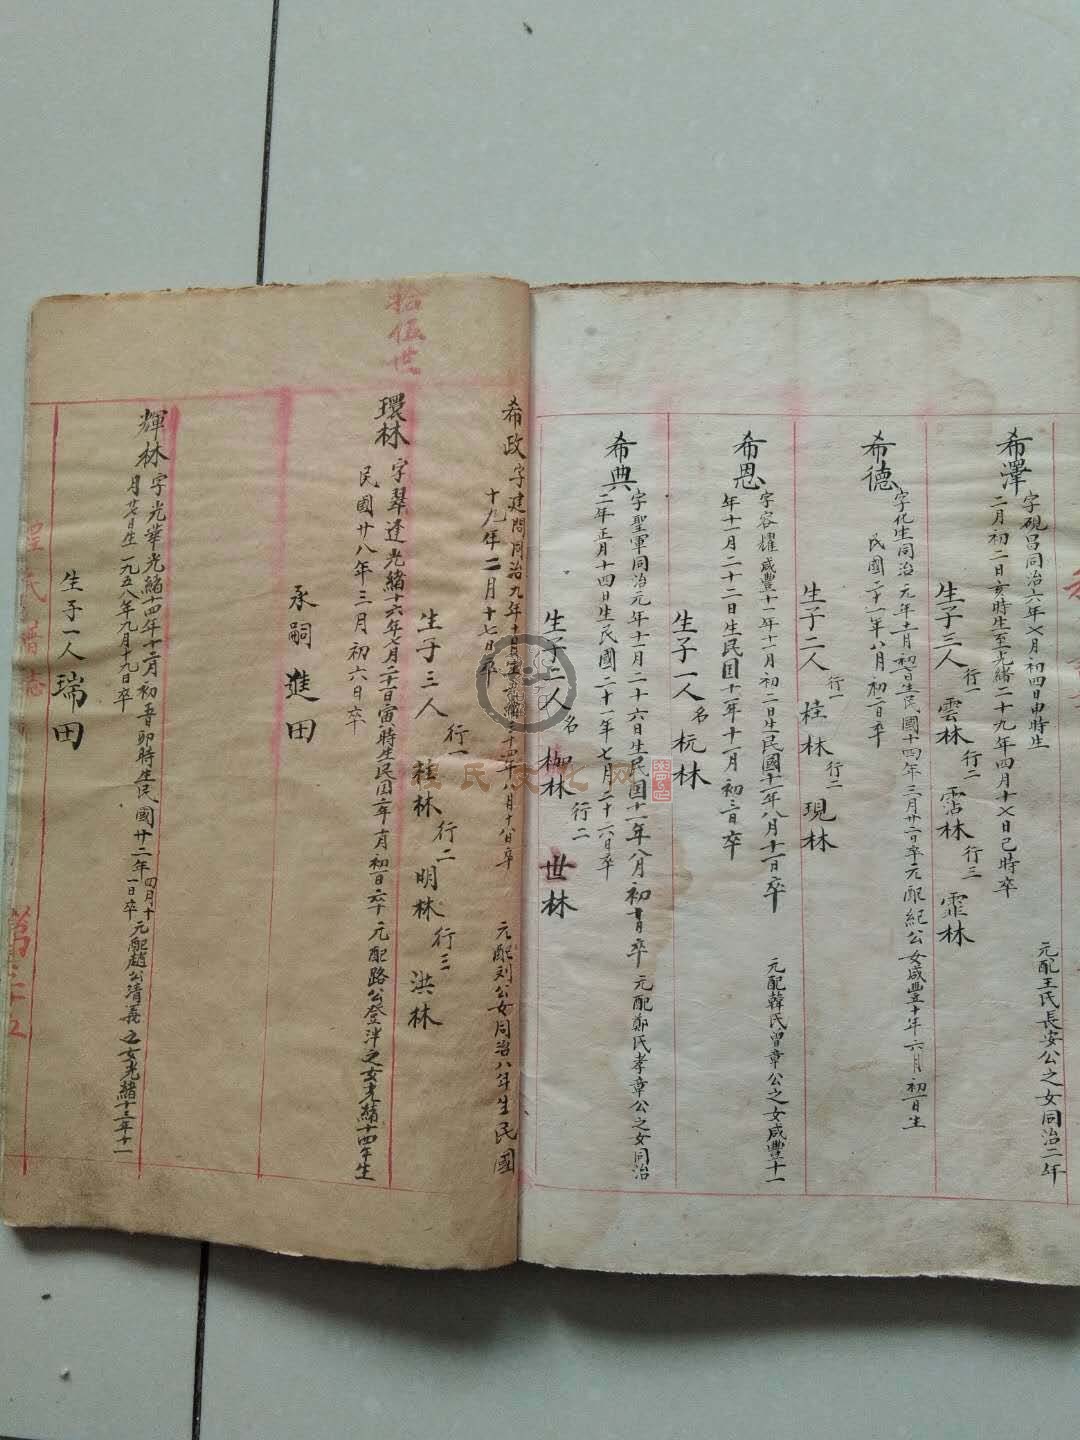 希澤
字硯昌同治六年七月初四申時生
二月初二日亥時生至光緒二十九年四月十七日己時卒
元配王氏長安公之女同治二年
生子三人 行一 雲林 行二 霑林 行三 霏林
希德
字化生同治元年十一月初一日生民國十四年三月廿六日卒元配紀公女咸豐十年六月初一日生
民國二十一年八月初二日卒
生子二人 行一 桂林 行二 現林
希恩
字容耀咸豐十一年十一月初二日生民國十一年八月十一日卒
元配韓氏曾章公之女咸豐十一
年十一月二十二日生民国十一年十一月初三日卒
生子一人 名 杬林
希典
字聖軍同治元年十一月二十六日生民国十一年八月初十日卒 元配鄭氏孝章公之女同治
二年正月十四日生民國二十一年七月二十六日卒
生子二人 名 枷林 行二 世林
希政
字建問同治九年十月
三十四年八月十八日卒
元配刘公女同治八年生民國
十九年二月十七日卒
生子三人 行一 桂林 行二 明林 行三 洪林
拾伍世
環林
字翠逢光緒十六年七月二十日寅時生民国
元配路公登泮之女光緒十四年生
民國廿八年三月初六日卒
承嗣 進田
輝林
字光華光緒十四年十二月初五日卯時生民國廿二年四月十一日卒元配趙公清義之女光緒十三年十一
月廿七日生一九五八年九月十九日卒
生子一人 瑞田
程氏譜志
程氏文化网